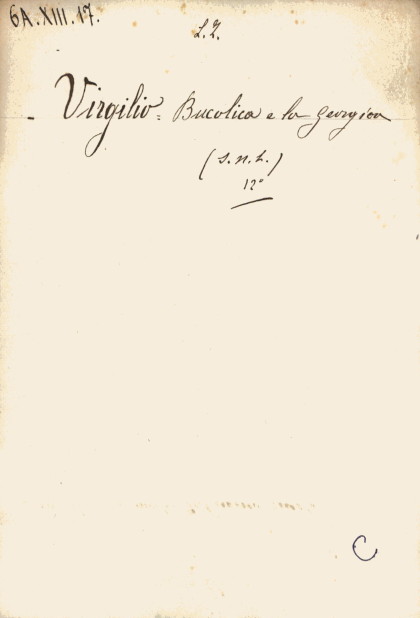 6A.XIII.17.
L.I.
Virgilio = Bucolica e la georgica
(s.n.t.)
12°
C